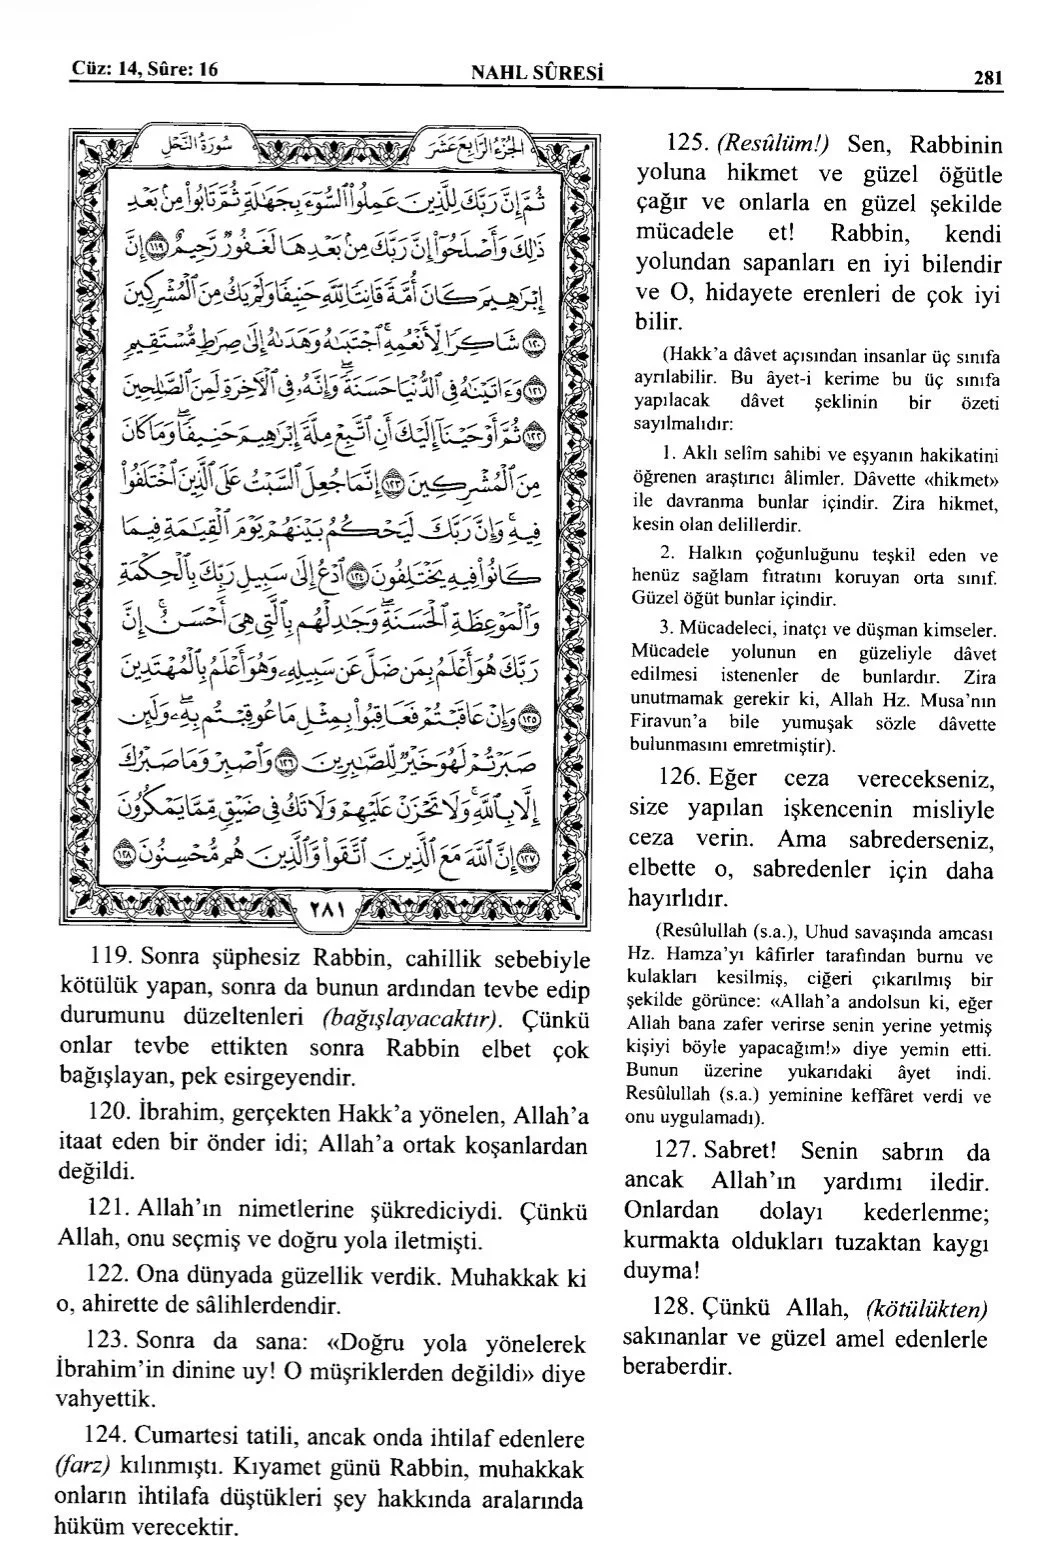 Cüz: 14, Sûre: 16
NAHL SÛRESİ
281
سُورَةُ النَّحْلِ
الجُزْءُ الرَّابِعَ عَشَرَ
ثُمَّ إِنَّ رَبَّكَ لِلَّذِينَ عَمِلُوا۟ ٱلسُّوٓءَ بِجَهَٰلَةٍ ثُمَّ تَابُوا۟ مِنۢ بَعْدِ
ذَٰلِكَ وَأَصْلَحُوٓا۟ إِنَّ رَبَّكَ مِنۢ بَعْدِهَا لَغَفُورٌ رَّحِيمٌ ١١٩ إِنَّ
إِبْرَٰهِيمَ كَانَ أُمَّةً قَانِتًا لِّلَّهِ حَنِيفًا وَلَمْ يَكُ مِنَ ٱلْمُشْرِكِينَ
١٢٠ شَاكِرًا لِّأَنْعُمِهِ ۚ ٱجْتَبَىٰهُ وَهَدَىٰهُ إِلَىٰ صِرَٰطٍ مُّسْتَقِيمٍ
١٢١ وَءَاتَيْنَٰهُ فِى ٱلدُّنْيَا حَسَنَةً ۖ وَإِنَّهُۥ فِى ٱلْءَاخِرَةِ لَمِنَ ٱلصَّٰلِحِينَ
١٢٢ ثُمَّ أَوْحَيْنَآ إِلَيْكَ أَنِ ٱتَّبِعْ مِلَّةَ إِبْرَٰهِيمَ حَنِيفًا ۖ وَمَا كَانَ
مِنَ ٱلْمُشْرِكِينَ ١٢٣ إِنَّمَا جُعِلَ ٱلسَّبْتُ عَلَى ٱلَّذِينَ ٱخْتَلَفُوا۟
فِيهِ ۚ وَإِنَّ رَبَّكَ لَيَحْكُمُ بَيْنَهُمْ يَوْمَ ٱلْقِيَٰمَةِ فِيمَا
كَانُوا۟ فِيهِ يَخْتَلِفُونَ ١٢٤ ٱدْعُ إِلَىٰ سَبِيلِ رَبِّكَ بِٱلْحِكْمَةِ
وَٱلْمَوْعِظَةِ ٱلْحَسَنَةِ ۖ وَجَٰدِلْهُم بِٱلَّتِى هِىَ أَحْسَنُ ۚ إِنَّ
رَبَّكَ هُوَ أَعْلَمُ بِمَن ضَلَّ عَن سَبِيلِهِۦ وَهُوَ أَعْلَمُ بِٱلْمُهْتَدِينَ
١٢٥ وَإِنْ عَاقَبْتُمْ فَعَاقِبُوا۟ بِمِثْلِ مَا عُوقِبْتُم بِهِۦ ۖ وَلَئِن
صَبَرْتُمْ لَهُوَ خَيْرٌ لِّلصَّٰبِرِينَ ١٢٦ وَٱصْبِرْ وَمَا صَبْرُكَ
إِلَّا بِٱللَّهِ ۚ وَلَا تَحْزَنْ عَلَيْهِمْ وَلَا تَكُ فِى ضَيْقٍ مِّمَّا يَمْكُرُونَ
١٢٧ إِنَّ ٱللَّهَ مَعَ ٱلَّذِينَ ٱتَّقَوا۟ وَّٱلَّذِينَ هُم مُّحْسِنُونَ ١٢٨
٢٨١
119. Sonra şüphesiz Rabbin, cahillik sebebiyle
kötülük yapan, sonra da bunun ardından tevbe edip
durumunu düzeltenleri (bağışlayacaktır). Çünkü
onlar tevbe ettikten sonra Rabbin elbet çok
bağışlayan, pek esirgeyendir.
120. İbrahim, gerçekten Hakk’a yönelen, Allah’a
itaat eden bir önder idi; Allah’a ortak koşanlardan
değildi.
121. Allah’ın nimetlerine şükrediciydi. Çünkü
Allah, onu seçmiş ve doğru yola iletmişti.
122. Ona dünyada güzellik verdik. Muhakkak ki
o, ahirette de sâlihlerdendir.
123. Sonra da sana: «Doğru yola yönelerek
İbrahim’in dinine uy! O müşriklerden değildi» diye
vahyettik.
124. Cumartesi tatili, ancak onda ihtilaf edenlere
(farz) kılınmıştı. Kıyamet günü Rabbin, muhakkak
onların ihtilafa düştükleri şey hakkında aralarında
hüküm verecektir.
125. (Resûlüm!) Sen, Rabbinin
yoluna hikmet ve güzel öğütle
çağır ve onlarla en güzel şekilde
mücadele et! Rabbin, kendi
yolundan sapanları en iyi bilendir
ve O, hidayete erenleri de çok iyi
bilir.
(Hakk’a dâvet açısından insanlar üç sınıfa
ayrılabilir. Bu âyet-i kerime bu üç sınıfa
yapılacak dâvet şeklinin bir özeti
sayılmalıdır:
1. Aklı selîm sahibi ve eşyanın hakikatini
öğrenen araştırıcı âlimler. Dâvette «hikmet»
ile davranma bunlar içindir. Zira hikmet,
kesin olan delillerdir.
2. Halkın çoğunluğunu teşkil eden ve
henüz sağlam fıtratını koruyan orta sınıf.
Güzel öğüt bunlar içindir.
3. Mücadeleci, inatçı ve düşman kimseler.
Mücadele yolunun en güzeliyle dâvet
edilmesi istenenler de bunlardır. Zira
unutmamak gerekir ki, Allah Hz. Musa’nın
Firavun’a bile yumuşak sözle dâvette
bulunmasını emretmiştir).
126. Eğer ceza verecekseniz,
size yapılan işkencenin misliyle
ceza verin. Ama sabrederseniz,
elbette o, sabredenler için daha
hayırlıdır.
(Resûlullah (s.a.), Uhud savaşında amcası
Hz. Hamza’yı kâfirler tarafından burnu ve
kulakları kesilmiş, ciğeri çıkarılmış bir
şekilde görünce: «Allah’a andolsun ki, eğer
Allah bana zafer verirse senin yerine yetmiş
kişiyi böyle yapacağım!» diye yemin etti.
Bunun üzerine yukarıdaki âyet indi.
Resûlullah (s.a.) yeminine keffâret verdi ve
onu uygulamadı).
127. Sabret! Senin sabrın da
ancak Allah’ın yardımı iledir.
Onlardan dolayı kederlenme;
kurmakta oldukları tuzaktan kaygı
duyma!
128. Çünkü Allah, (kötülükten)
sakınanlar ve güzel amel edenlerle
beraberdir.